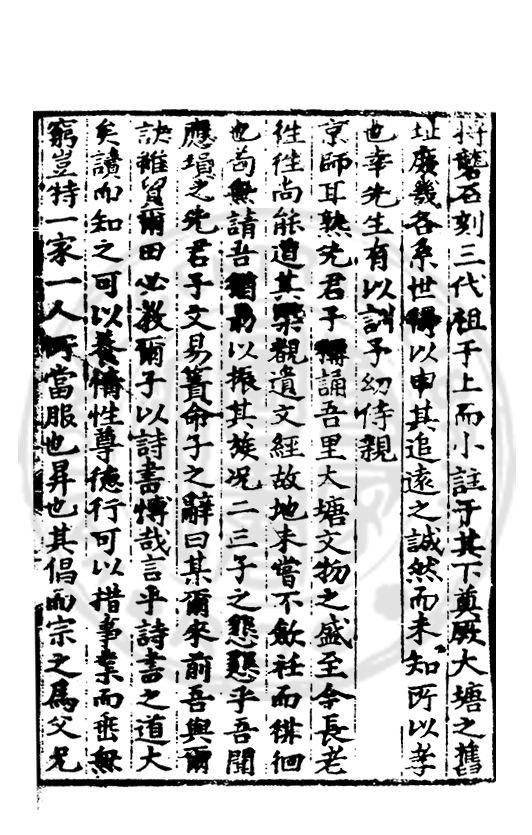 將礱石刻三代祖于上而小註于其下奠厥大塘之舊
址庶幾各系世得以申其追遠之誠然而未知所以孝
也幸先生有以訓予幼侍親
京師耳熟先君子稱誦吾里大塘文物之盛至余長老
往往尚能道其槩觀遺文經故地未嘗不歛衽而徘徊
也苟無請吾猶以振其族况二三子之懇懇乎吾聞
應塤之先君子文易簀命子之辭曰某爾來前吾與爾
訣雖貧爾田必教爾子以詩書慱哉言乎詩書之道大
矣讀而知之可以養情性尊德行可以措事業而垂無
窮豈特一家一人所當服也昇也其倡而宗之爲父兄